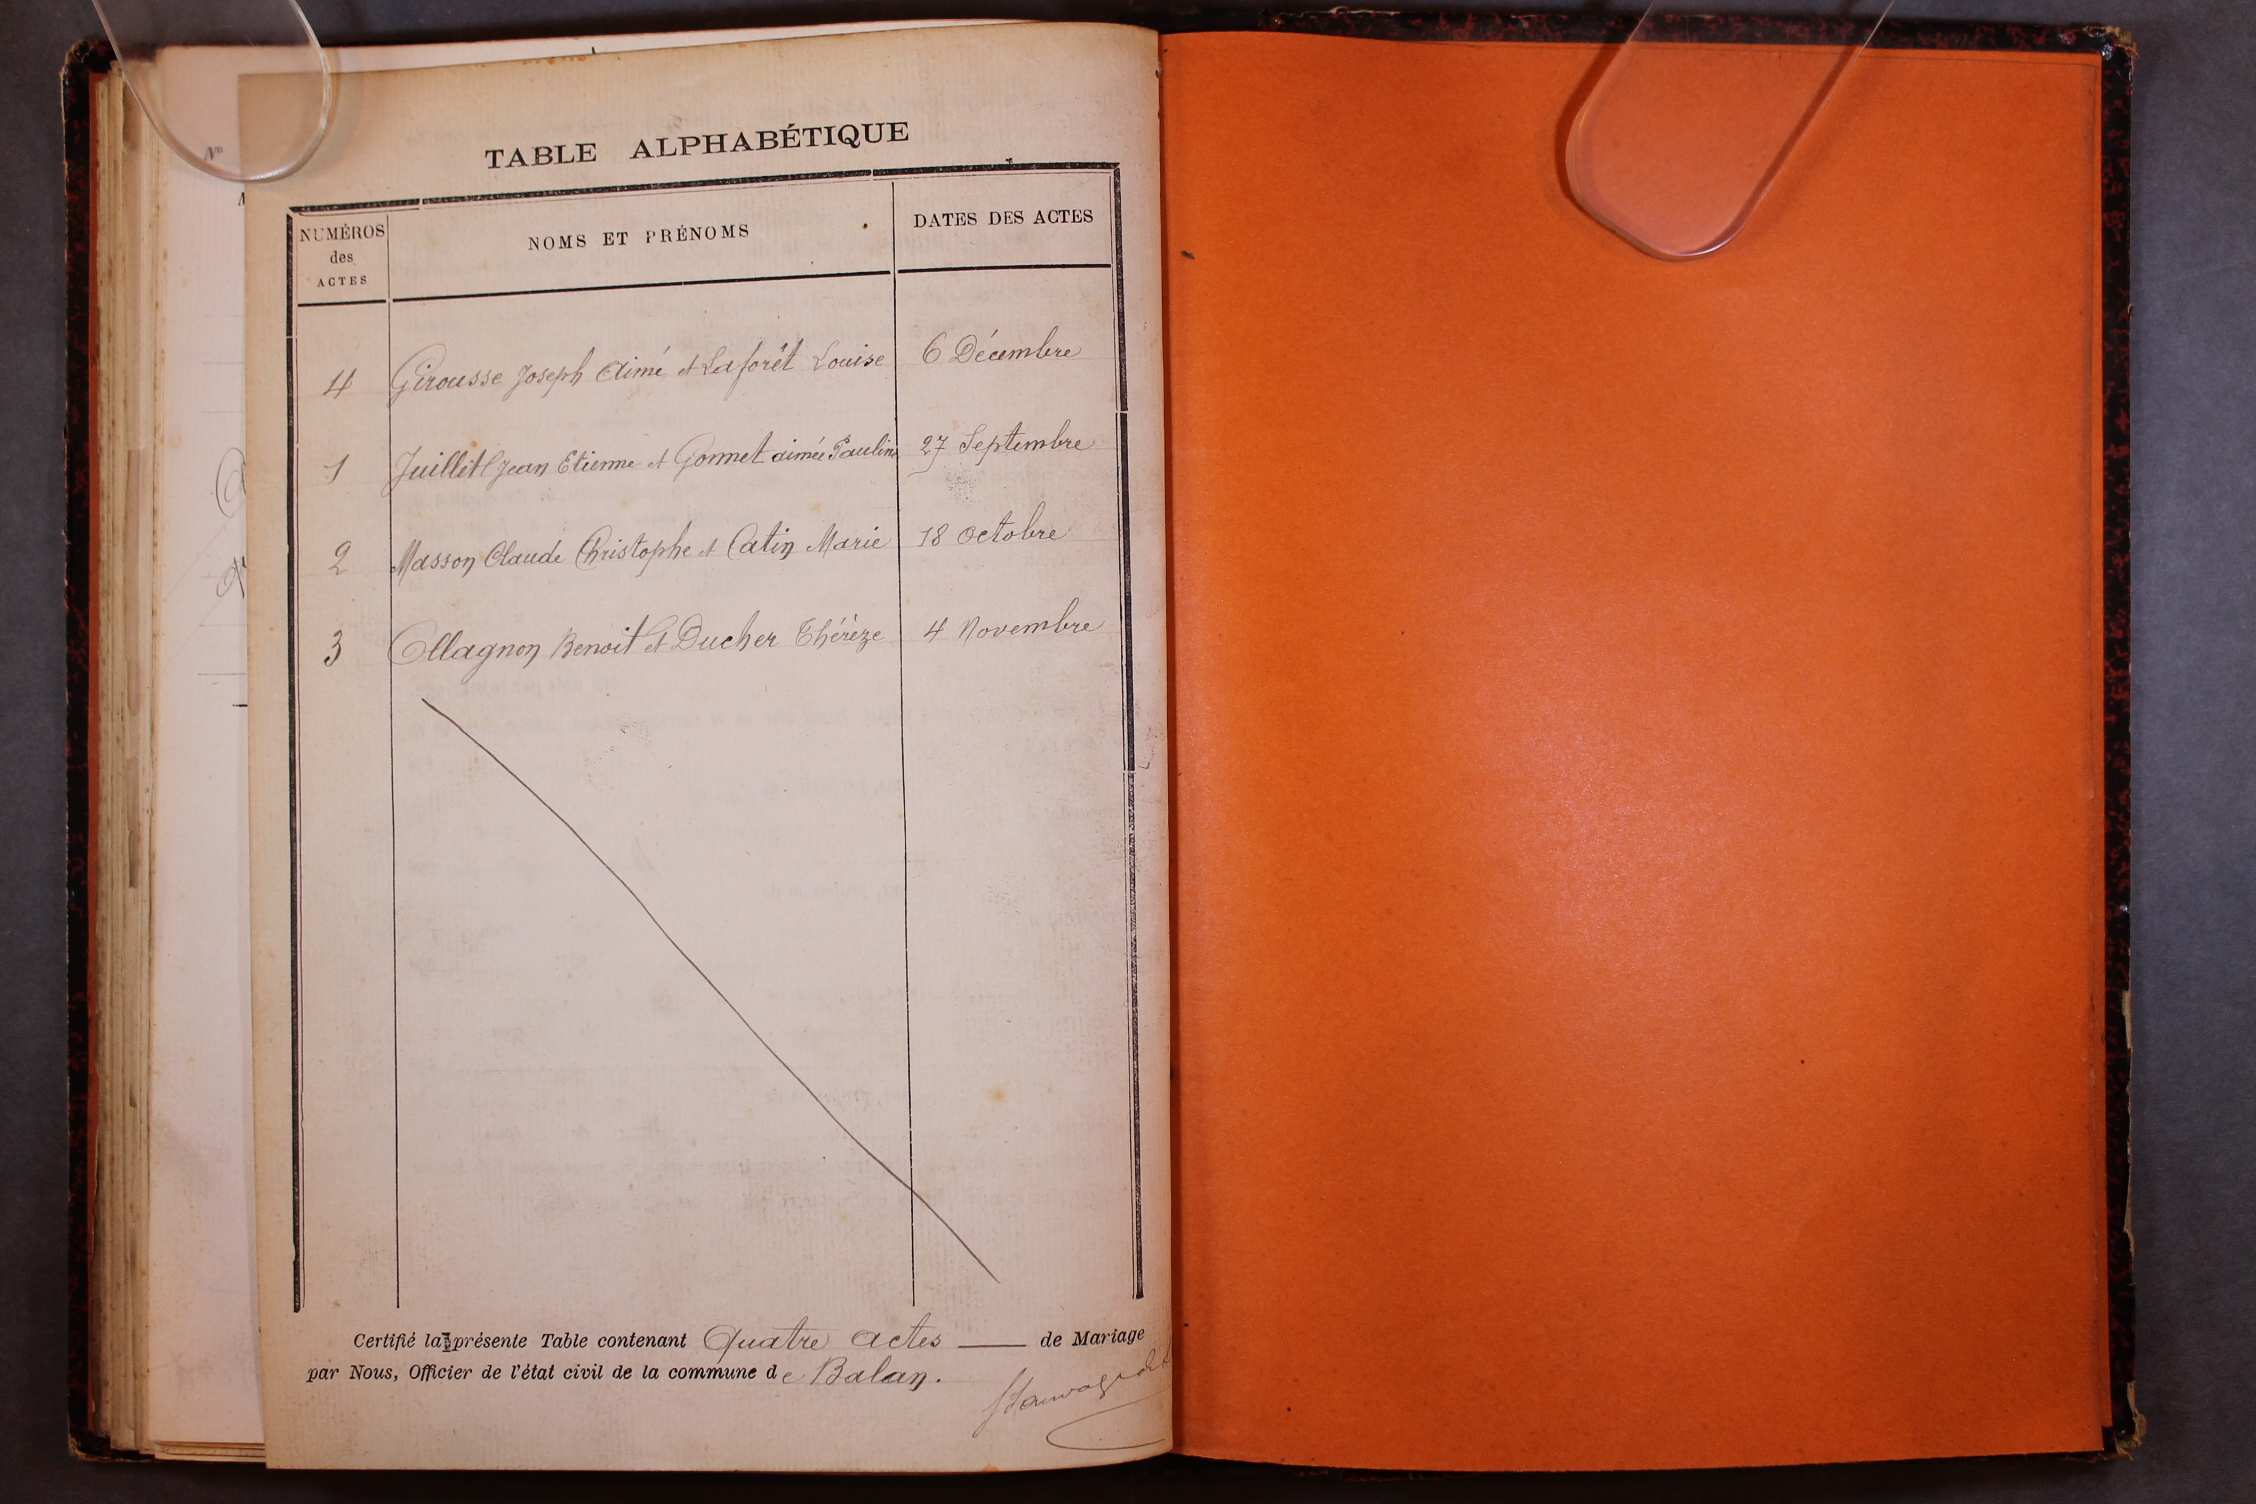 TABLE ALPHABÉTIQUE
NUMÉROS des ACTES
NOMS ET PRÉNOMS
DATES DES ACTES
4 Girousse Joseph Aimé et Laforêt Louise 6 Décembre
1 Juillet Jean Etienne et Gonnet aimée Pauline 27 Septembre
2 Masson Claude Christophe et Catin Marie 18 Octobre
3 Ollagnon Benoit et Ducher Thérèze 4 Novembre
Certifié la présente Table contenant Quatre actes de Mariage
par Nous, Officier de l'état civil de la commune de Balan.